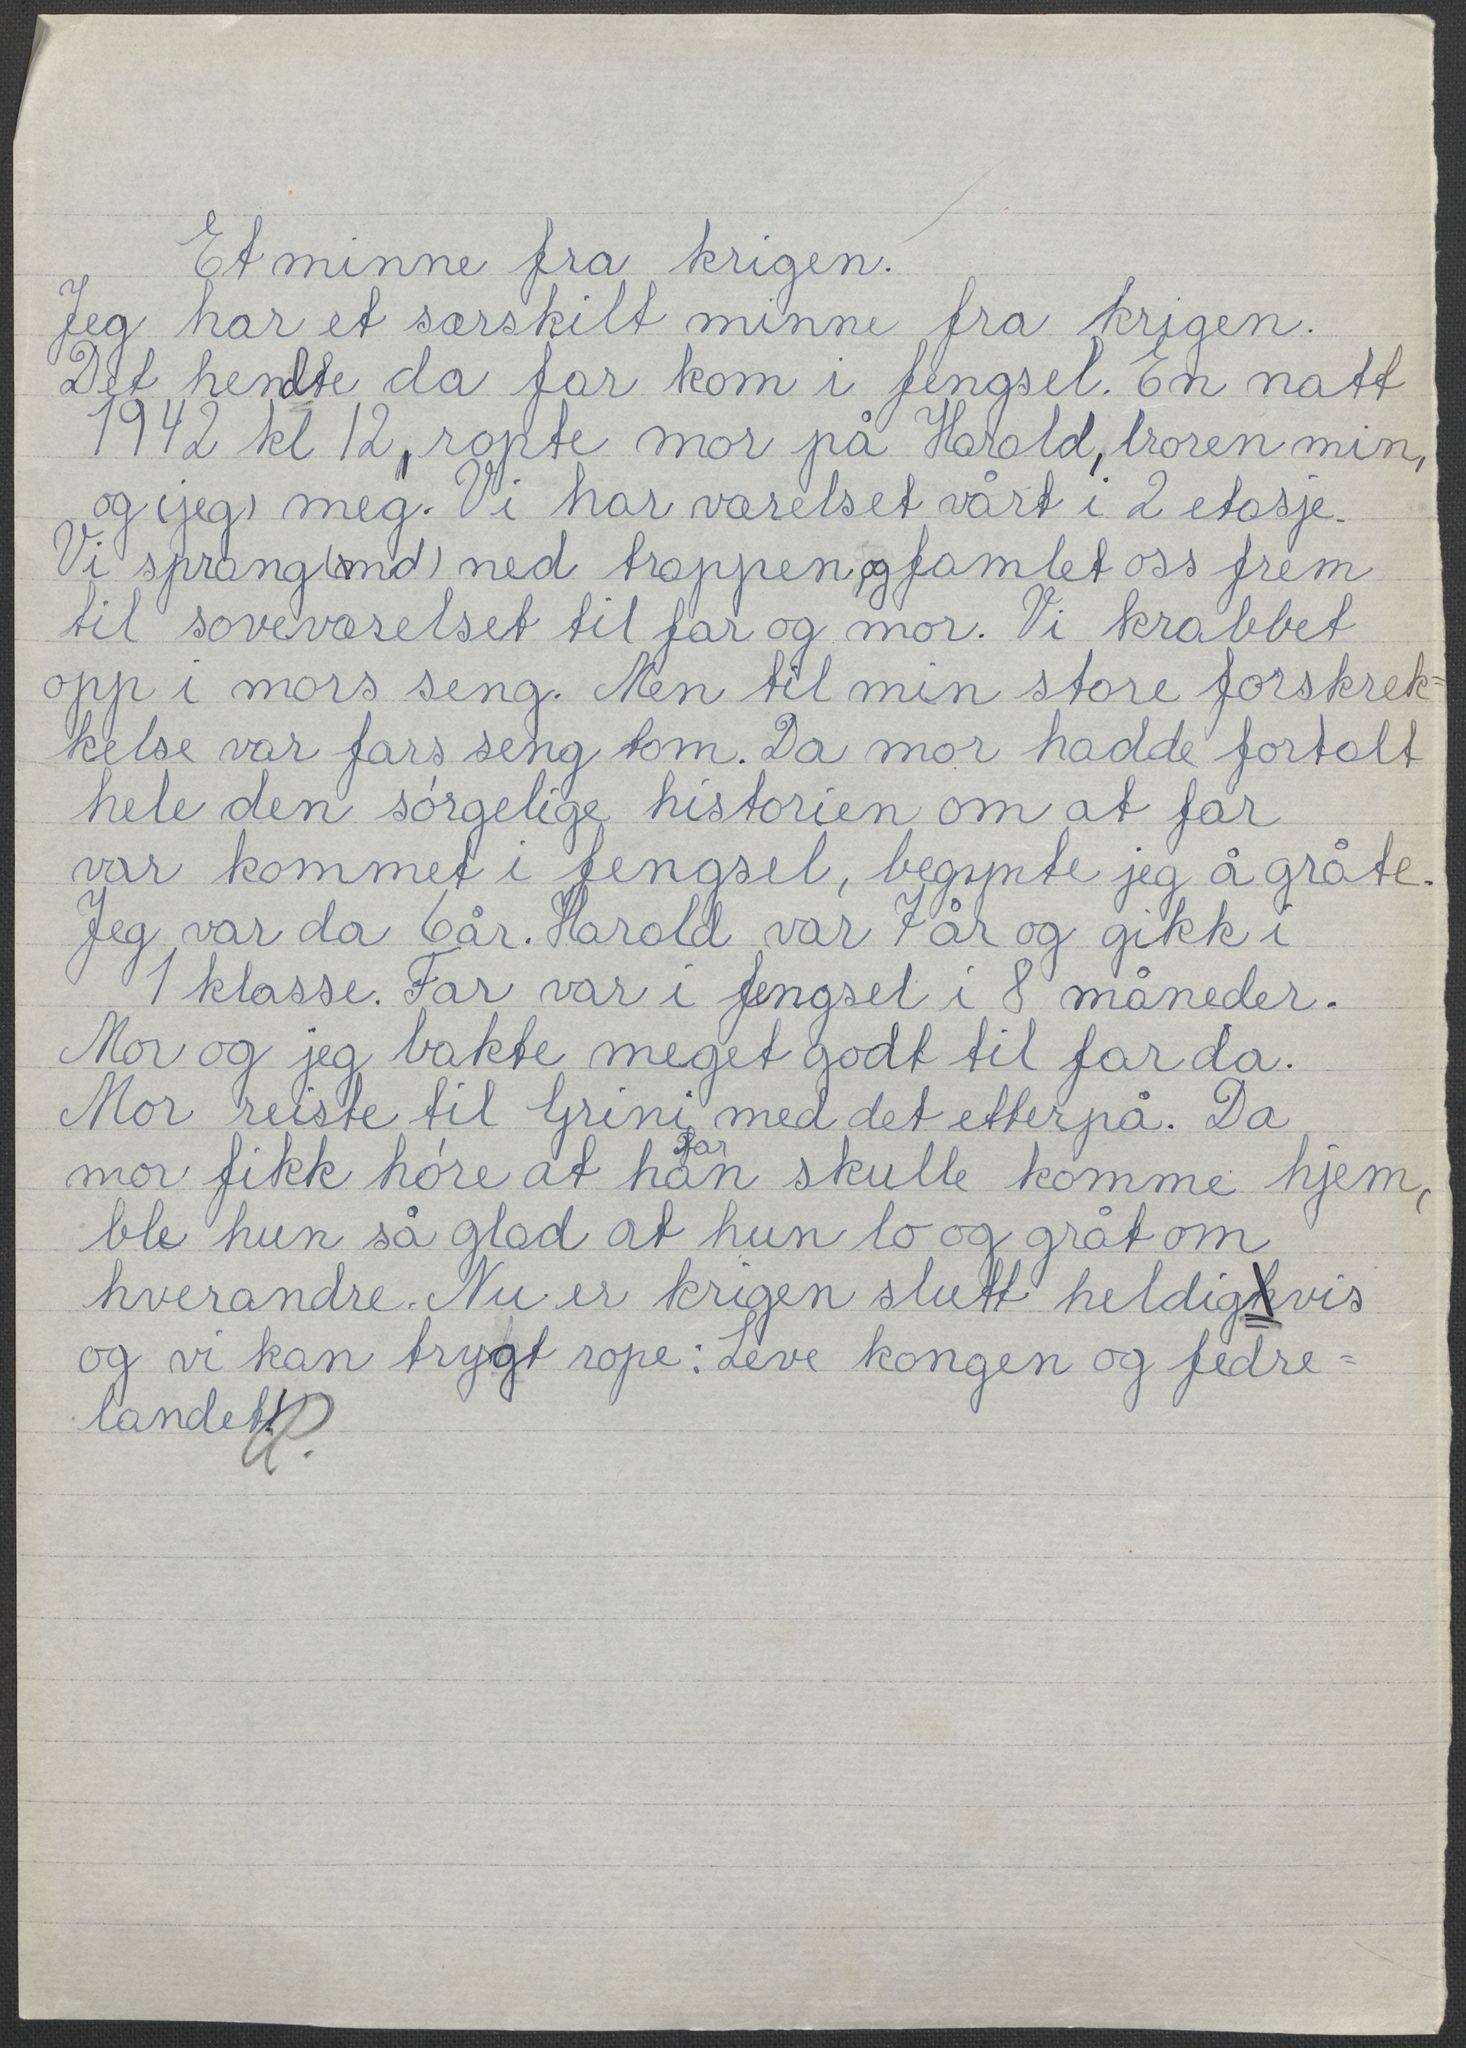 Et minne fra krigen.
Jeg har et særskilt minne fra krigen.
Det hendte da far kom i fengsel. En natt
1942 kl 12, ropte mor på Harald, broren min,
og (jeg) meg. Vi har værelset vårt i 2 etasje.
Vi sprang (md) ned trappen og famlet oss frem
til soveværelset til far og mor. Vi krabbet
opp i mors seng. Men til min store forskrek=
kelse var fars seng tom. Da mor hadde fortalt
hele den sórgelige historien om at far
var kommet i fengsel, begynte jeg å gråte.
Jeg var da 6 år. Harald var 7 år og gikk i
1 klasse. Far var i fengsel i 8 måneder.
Mor og jeg bakte meget godt til far da.
Mor reiste til Grini med det etterpå. Da
far
mor fikk hóre at han skulle komme hjem,
ble hun så glad at hun lo og gråt om
hverandre. Nu er krigen slutt heldigvis
og vi kan trygt rope: Leve kongen og fedre=
landet!